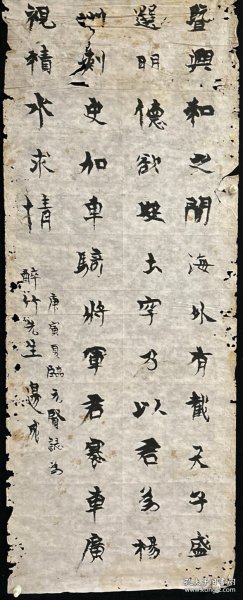 暨興和之開海外有截天子盛
選明德欲班土宇乃以君為楊
州刺史加車騎將軍君褰車廣
視積水求情
庚寅夏臨元賢誌为
醉竹先生 易成